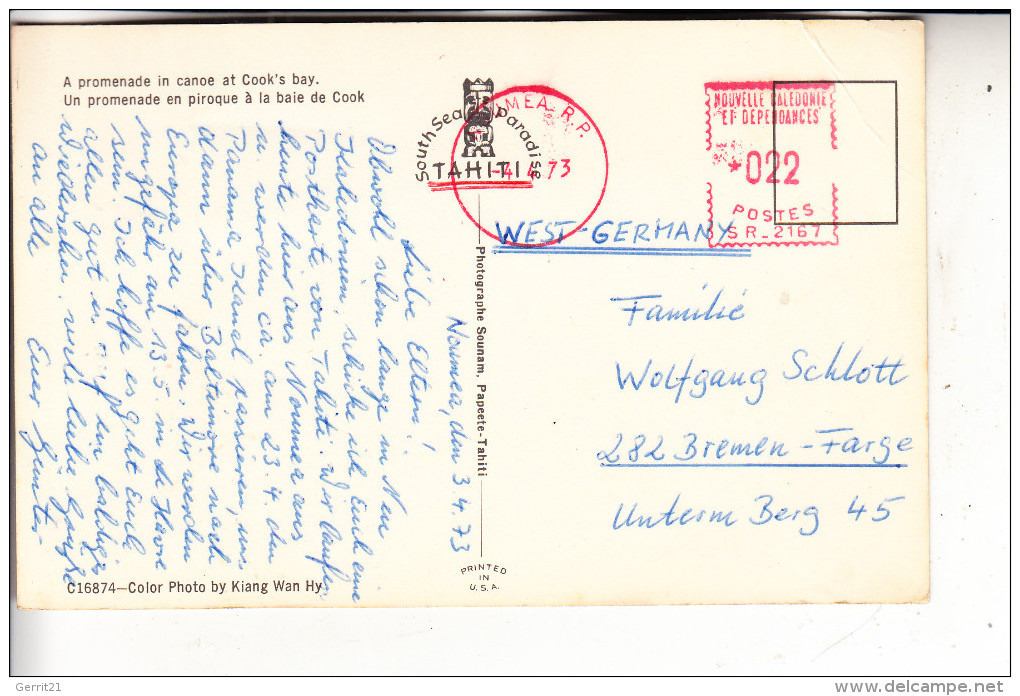 A promenade in canoe at Cook's bay.
Un promenade en piroque à la baie de Cook
South Sea paradise
TAHITI
NOUMEA R.P.
-4.4.73
NOUVELLE CALEDONIE
ET DEPENDANCES
*022
POSTES
SR_2167
WEST-GERMANY
Familie
Wolfgang Schlott
282 Bremen-Farge
Unterm Berg 45
Noumea, den 3.4.73
Liebe Eltern!
Obwohl schon lange in Neu
Kaledonien, schicke ich Euch eine
Postkarte von Tahiti. Wir laufen
heute hier aus Noumea aus
u. werden ca. am 23.4. den
Panama Kanal passieren, um
dann über Baltimore nach
Europa zu fahren. Wir werden
ungefähr am 13.5. in Le Havre
sein. Ich hoffe es geht Euch
allen gut u. auf ein baldiges
Wiedersehn. viele liebe Grüße
an alle Euer Günter
Photographe Sounam, Papeete-Tahiti
PRINTED
IN
U.S.A.
C16874—Color Photo by Kiang Wan Hy
Gerrit21
www.delcampe.net